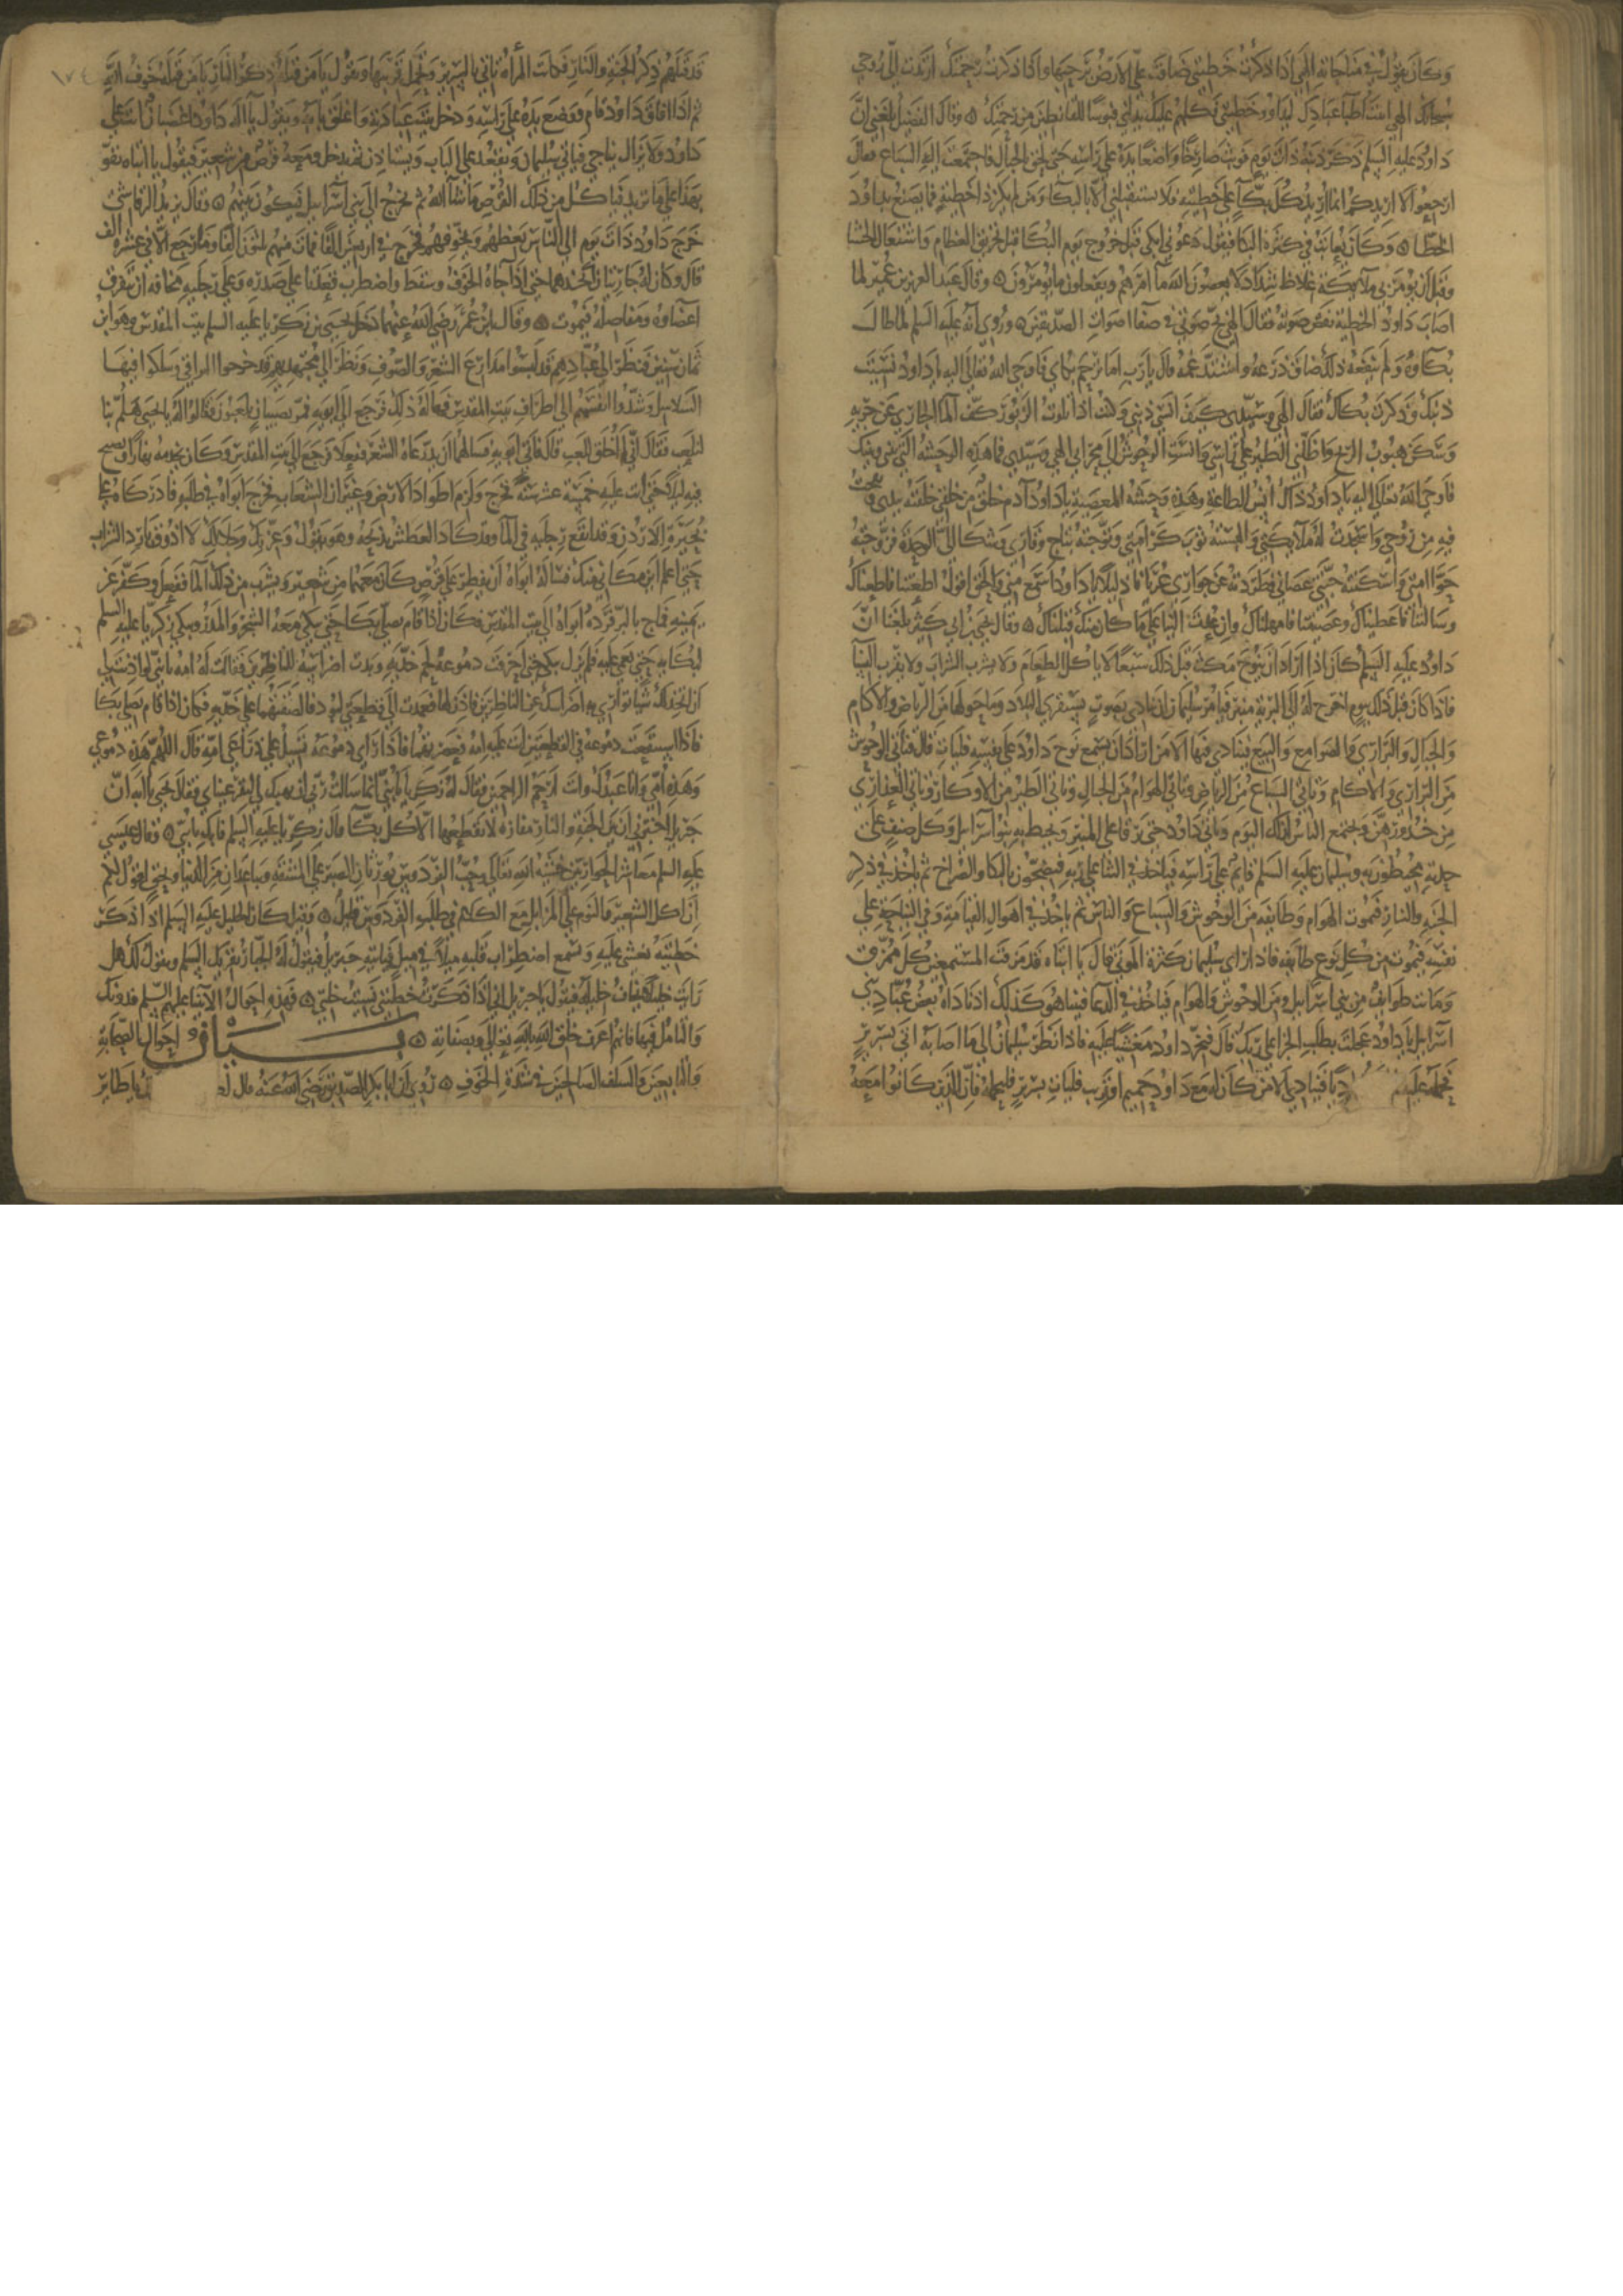 وكان يقول في مناجاته الهي اذا ذكرت خطيئتي ضاقت علي الارض برحبها واذا ذكرت رحمتك ارتدت الي روحي
سبحانك الهي اتيت اطبا عبادك ليداووا خطيئتي فكلهم عليك يدلني فبوسا للقانطين من رحمتك ه وقال الفضيل بلغني ان
داود عليه السلم ذكر ذنبه ذات يوم فوثب صارخا واضعا يده علي راسه حتي لحق بالجبال فاجتمعت اليه السباع فقال
ارجعوا لا اريدكم انما اريد كل بكاء علي خطيئته فلا يستقبلني الا بالبكا ومن لم يكن ذا خطيئة فما يصنع بداود
الخطا ه وكان يعاتب في كثرة البكا فيقول دعوني ابكي قبل خروج يوم البكا قبل تحريق العظام واشتعال الحشا
وقبل ان يومر بي ملايكة غلاظ شداد لا يعصون الله ما امرهم ويفعلون ما يومرون ه وقال عبد العزيز بن عمير لما
اصاب داود الخطيئة نقص صوته فقال الهي بح صوتي في صفا اصوات الصديقين ه وروي انه عليه السلم لما طال
بكاوه ولم ينفعه ذلك ضاق ذرعه واشتد غمه قال يارب اما ترحم بكاي فاوحي الله تعالي اليه ياداود نسيت
ذنبك وذكرت بكاك فقال الهي وسيدي كيف انسي ذنبي وكنت اذا تلوت الزبور كف الماء الجاري عن جريه
وسكن هبوب الريح واظلني الطير علي راسي وانست الوحوش الي محرابي الهي وسيدي فما هذه الوحشة التي بيني وبينك
فاوحي الله تعالي اليه ياداود ذاك انس الطاعة وهذه وحشة المعصية ياداود آدم خلق من خلقي خلقته بيدي ونفخت
فيه من روحي واسجدت له ملايكتي والبسته ثوب كرامتي وتوجته بتاج وقاري وشكا الي الوحدة فزوجته
حوا امتي واسكنته جنتي عصاني فطردته عن جواري عريانا ذليلا ياداود اسمع مني والحق اقول اطعتنا فاطعناك
وسالتنا فاعطيناك وعصيتنا فامهلناك وان عدت الينا علي ما كان منك قبلناك ه وقال يحيي بن ابي كثير بلغنا ان
داود عليه السلم كان اذا اراد ان ينوح مكث قبل ذلك سبعا لا ياكل الطعام ولا يشرب الشراب ولا يقرب النسا
فاذا كان قبل ذلك بيوم اخرج له الي البرية منبر فيامر سليمان ان ينادي بصوت يستقري البلاد وما حولها من الرياض والاكام
والجبال والبراري والصوامع والبيع ينادي فيها الا من اراد ان يسمع نوح داود علي نفسه فليات قال فتاتي الوحوش
من البراري والاكام وتاتي السباع من الرياض وتاتي الهوام من الجبال وتاتي الطير من الاوكار وتاتي العذاري
من خدورهن ويجتمع الناس لذلك اليوم وياتي داود حتي يرقا علي المنبر ويحيط به بنو اسرايل وكل صنف علي
حدته محيطون به وسليمان عليه السلم قايم علي راسه فياخذ في الثنا علي ربه فيضجون بالبكا والصراخ ثم ياخذ في ذكر
الجنة والنار فتموت الهوام وطايفة من الوحوش والسباع والناس ثم ياخذ في اهوال القيامة وفي النياحة علي
نفسه فيموت من كل نوع طايفة فاذا راي سليمان كثرة الموتي قال يا ابتاه قد مزقت المستمعين كل ممزق
وماتت طوايف من بني اسرايل ومن الوحوش والهوام فياخذ في الدعا فبينا هو كذلك اذ ناداه بعض عباد بني
اسرايل ياداود عجلت بطلب الجزا علي ربك قال فيخر داود مغشيا عليه فاذا نظر سليمان الي ما اصابه اتي بسرير
فحمله عليه فينادي الا من كان له مع داود حميم او قريب فليات بسرير فليحمله فان الذين كانوا معه
١٧٤
قد قتلهم ذكر الجنة والنار فكانت المرأة تاتي بالسرير وتحمل قريبها وتقول يا من قتله ذكر النار يا من قتله خوف الله
ثم اذا افاق داود قام ووضع يده علي راسه ودخل بيت عبادته واغلق بابه ويقول يا اله داود اغضبان انت علي
داود ولا يزال يناجي فياتي سليمان ويقعد علي الباب ويستاذن ثم يدخل ومعه قرص من شعير فيقول يا ابتاه تقو
بهذا علي ما تريد فياكل من ذلك القرص ما شا الله ثم يخرج الي بني اسرايل فيكون بينهم ه وقال يزيد الرقاشي
خرج داود ذات يوم الي الناس يعظهم ويخوفهم فخرج في اربعين الفا فمات منهم ثلثون الفا وما رجع الا في عشرة الف
قال وكان له جاريتان اتخذهما حتي اذا جاءه الخوف وسقط واضطرب قعدتا علي صدره وعلي رجليه مخافة ان تتفرق
اعضاوه ومفاصله فيموت ه وقال ابن عمر رضي الله عنهما دخل يحيي بن زكريا عليه السلم بيت المقدس وهو ابن
ثمان سنين فنظر الي عبادهم قد لبسوا مدارع الشعر والصوف ونظر الي مجتهديهم قد خرقوا التراقي وسلكوا فيها
السلاسل وشدوا انفسهم الي اطراف بيت المقدس فهاله ذلك فرجع الي ابويه فمر بصبيان يلعبون فقالوا له يا يحيي هلم بنا
لنلعب فقال اني لم اخلق للعب قال فاتي ابويه فسالهما ان يدرعاه الشعر ففعلا فرجع الي بيت المقدس وكان يخدمه نهارا ويصبح
فيه ليلا حتي اتت عليه خمسة عشر سنة فخرج ولزم اطواد الارض وغيران الشعاب فخرج ابواه في طلبه فادركاه علي
بحيرة الاردن وقد انقع رجليه في الماء وقد كاد العطش يذبحه وهو يقول وعزتك وجلالك لا اذوق بارد الشراب
حتي اعلم اين مكاني منك فساله ابواه ان يفطر علي قرص كان معهما من شعير ويشرب من ذلك الماء ففعل وكفر عن
يمينه فمدح بالبر فرده ابواه الي بيت المقدس فكان اذا قام يصلي بكا حتي يبكي معه الشجر والمدر ويبكي زكريا عليه السلم
لبكايه حتي يغمي عليه فلم يزل يبكي حتي خرقت دموعه لحم خديه وبدت اضراسه للناظرين فقالت له امه يا بني لو اذنت لي
ان اتخذ لك شيا تواري به اضراسك عن الناظرين فاذن لها فعمدت الي قطعتي لبود فالصقتهما علي خديه فكان اذا قام يصلي بكا
فاذا استنقعت دموعه في القطعتين اتت عليه امه فعصرتهما فاذا راي دموعه تسيل علي ذراعي امه قال اللهم هذه دموعي
وهذه امي وانا عبدك وانت ارحم الراحمين فقال له زكريا يا بني انما سالت ربي ان يهبك لي لتقر عيناي فقال يحيي يا ابه ان
جبريل اخبرني ان بين الجنة والنار مفازة لا يقطعها الا كل بكاء قال زكريا عليه السلم فابك يا بني ه وقال عيسي
عليه السلم معاشر الحواريين خشية الله تعالي وحب الفردوس يورثان الصبر علي المشقة ويباعدان من الدنيا وبحق اقول لكم
ان اكل الشعير والنوم علي المزابل مع الكلاب في طلب الفردوس قليل ه وقيل كان الخليل عليه السلم اذا ذكر
خطيئته يغشي عليه ويسمع اضطراب قلبه ميلا في ميل فياتيه جبريل فيقول له الجبار يقريك السلم ويقول لك هل
رايت خليلا يخاف خليله فيقول يا جبريل اني اذا ذكرت خطيئتي نسيت خلتي ه فهذه احوال الانبيا عليهم السلم فدونك
والتامل فيها فانهم اعرف خلق الله بالله تعالي وبصفاته ه بيان احوال الصحابة
والتابعين والسلف الصالحين في شدة الخوف ه روي ان ابا بكر الصديق رضي الله عنه قال يا طاير